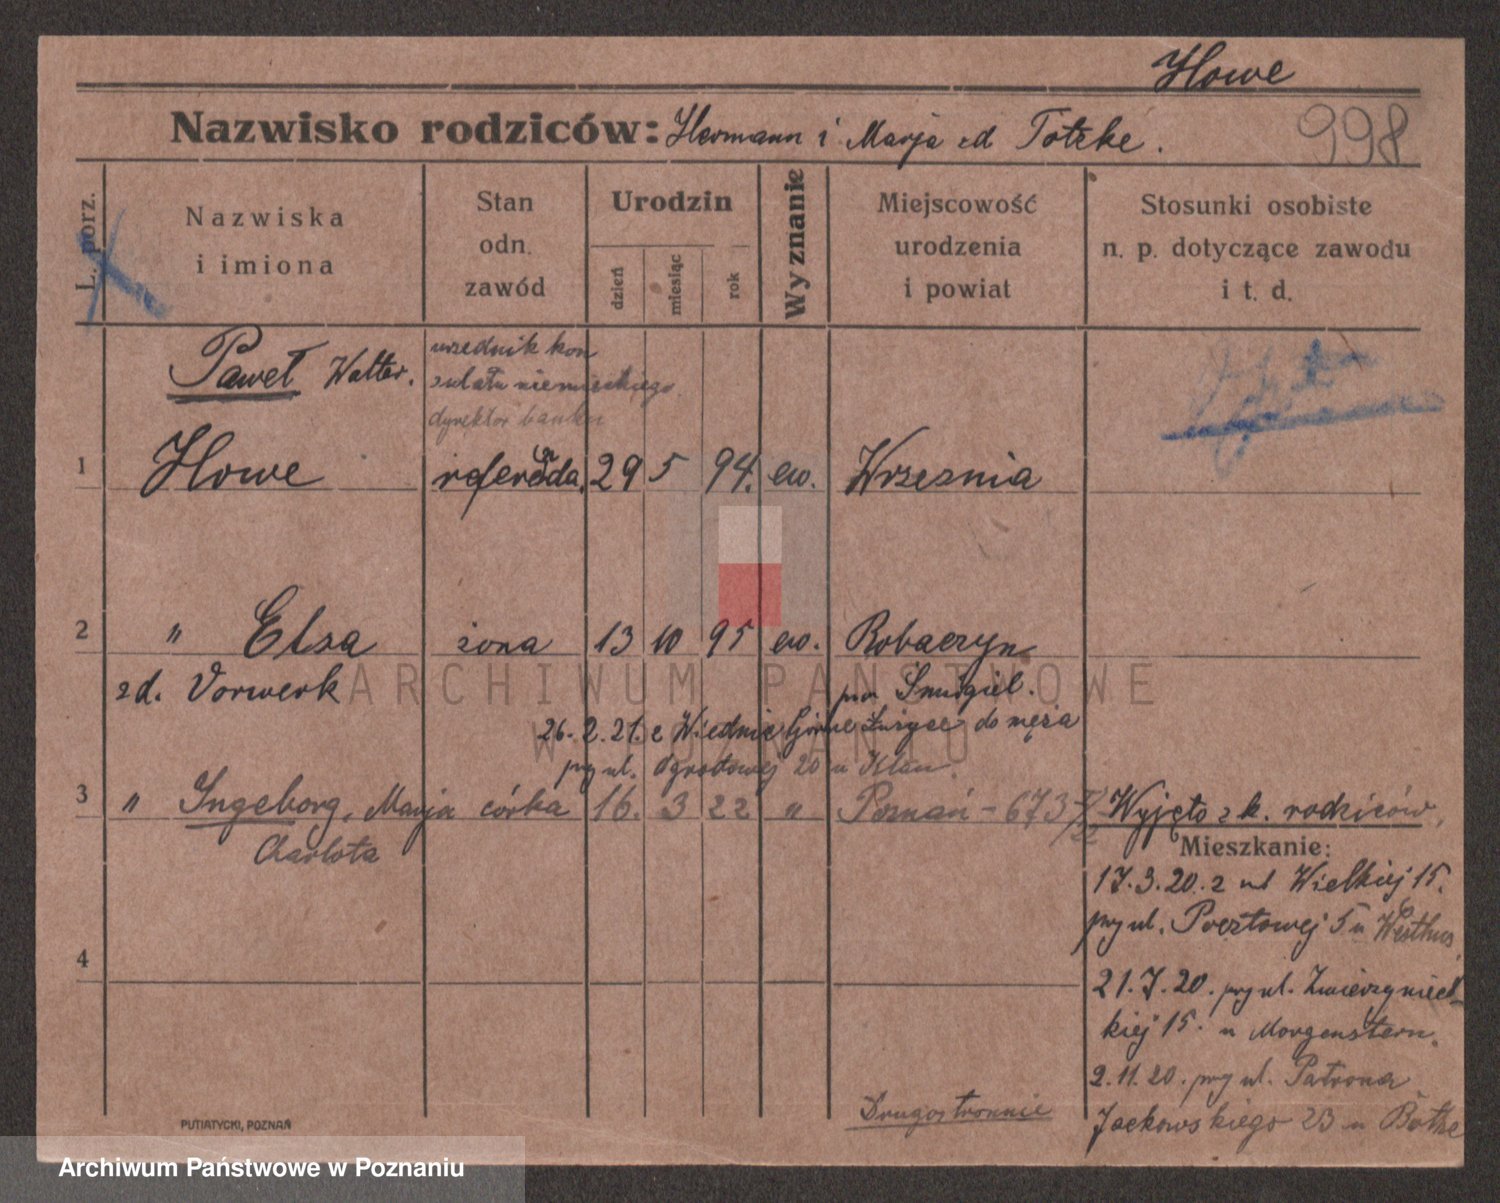 Howe
Nazwisko rodziców: Hermann i Marja zd Totzke.
998
L. porz.
Nazwiska
i imiona
Stan
odn.
zawód
Urodzin
dzień
miesiąc
rok
Wyznanie
Miejscowość
urodzenia
i powiat
Stosunki osobiste
n. p. dotyczące zawodu
i t. d.
Paweł Walter.
urzednik kon
zulatu niemieckiego
dyrektor banku
1 Howe 29 5 94. ew. Września
2 " Elsa żona 13 10 95 ew. Robaczyn
zd. Vorwerk pow Śmigiel.
26.2.21. z Wiednic Górne Łużyce do męża
przy ul. Ogrodowej 20 u
3 " Ingeborg, Marja córka 16. 3 22 " Poznań - 673 Wyjęto z k. rodziców,
Charlota
Mieszkanie:
17.3.20. z ul Wielkiej 15.
przy ul. Pocztowej 5 u
4
21.7.20. przy ul. Zwierzyniec-
kiej 15. u Morgenstern.
2.11.20. przy ul. Patrona
Jackowskiego 23 u
Drugostronnie
PUTIATYCKI, POZNAŃ
ARCHIWUM PAŃSTWOWE
W POZNANIU
Archiwum Państwowe w Poznaniu